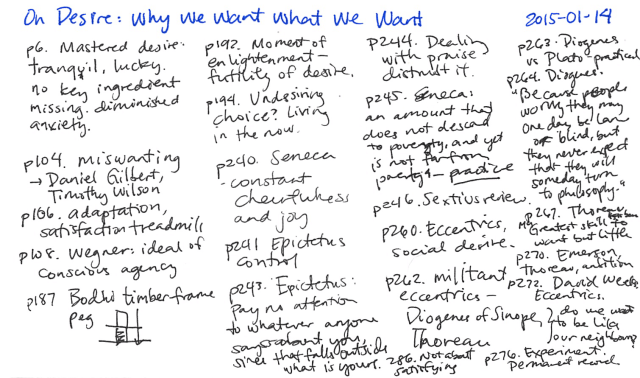 On Desire: Why We Want What We Want
2015-01-14
p6. Mastered desire:
tranquil, lucky.
no key ingredient
missing. diminished
anxiety.
p104. miswanting
→ Daniel Gilbert,
Timothy Wilson
p106. adaptation,
satisfaction treadmill
p108. Wegner: ideal of
conscious agency
p187 Bodhi timberframe
peg
p192. Moment of
enlightenment –
futility of desire.
p194. Undesiring
choice? Living
in the now.
p240. Seneca
- constant
cheerfulness
and joy
p241 Epictetus
control
p243. Epictetus:
Pay no attention
to whatever anyone
says about you
since that falls outside
what is yours.
p244. Dealing
with praise
distrust it.
p245. Seneca:
an amount that
does not descend
to poverty, and yet
is not far from
poverty – practice
p246. Sextius review.
p260. Eccentrics,
social desire.
p262. militant
eccentrics –
Diogenes of Sinope,
Thoreau
286. Not about
satisfying
p263. Diogenes
vs Plato - practical
p264. Diogenes:
"Because people
worry they may
one day be lame
or blind, but
they never expect
that they will
someday turn
to philosophy."
p267. Thoreau
"My greatest skill
to want but little
p270. Emerson,
Thoreau, ambition
p272. David Weeks
Eccentrics.
do we want
to be like
our neighbours?
p276. Experiment:
Permanent record